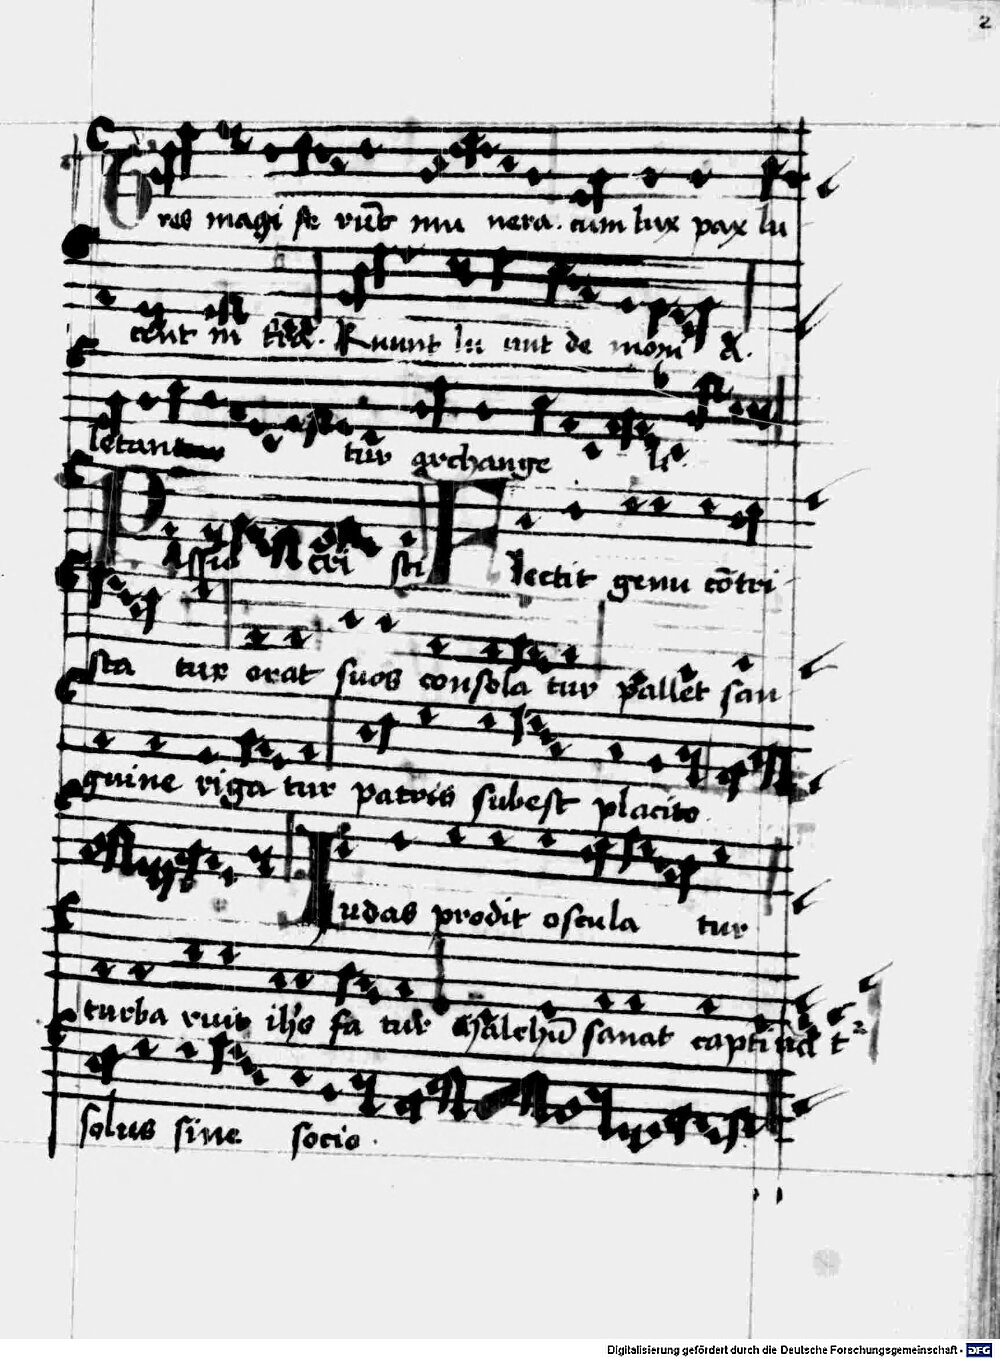 2
Tres magi fe rūt mu nera. cum lux pax lu
cent in
Ruunt lu unt de mon
letan tur archange li.
Passio cri sti Flectit genu cōtri
sta tur orat suos consola tur pallet san
guine riga tur patris subest placito.
Iudas prodit oscula tur
turba ruit ihs fa tur Malchū sanat capti
solus sine socio.
Digitalisierung gefördert durch die Deutsche Forschungsgemeinschaft - DFG